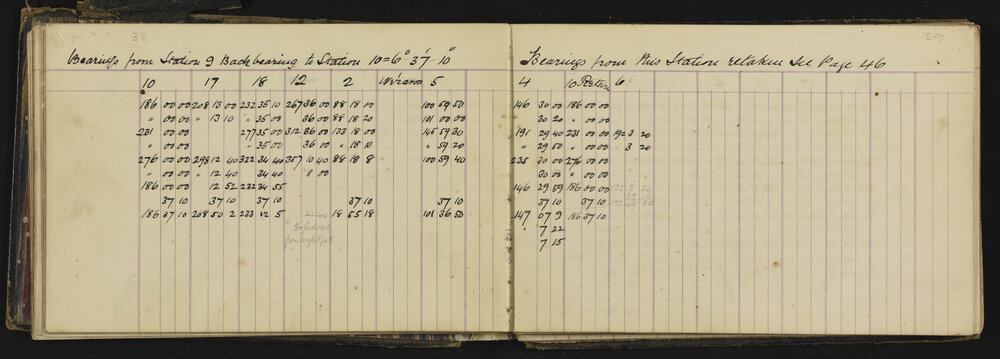 38
Bearings from Station 9 Back bearing to Station 10 = 6° 37' 10"
10 17 18 12 2 5
186 00 00 208 13 00 232 35 10 267 36 00 88 18 00 100 59 50
" 00 00 " 13 10 " 35 00 36 00 88 18 20 101 00 00
231 00 00 277 35 00 312 36 00 133 18 00 145 59 30
" 00 00 " 35 00 36 00 " 18 10 " 59 20
276 00 00 298 12 40 322 34 40 357 10 40 88 18 8 100 59 40
" 00 00 " 12 40 34 40 11 00
186 00 00 12 52 232 34 55
37 10 37 10 37 10 37 10 37 10
186 37 10 208 50 2 233 12 5 18 55 18 101 36 50
39
Bearings from this Station retaken See Page 46
4 10 Return 6
146 30 00 186 00 00
30 20 " 00 00
191 29 40 231 00 00 192 3 20
" 29 50 " 00 00 " 3 20
235 30 00 276 00 00
30 00 " 00 00
146 29 59 186 00 00
37 10 37 10
147 07 9 186 37 10
" 7 22
7 15